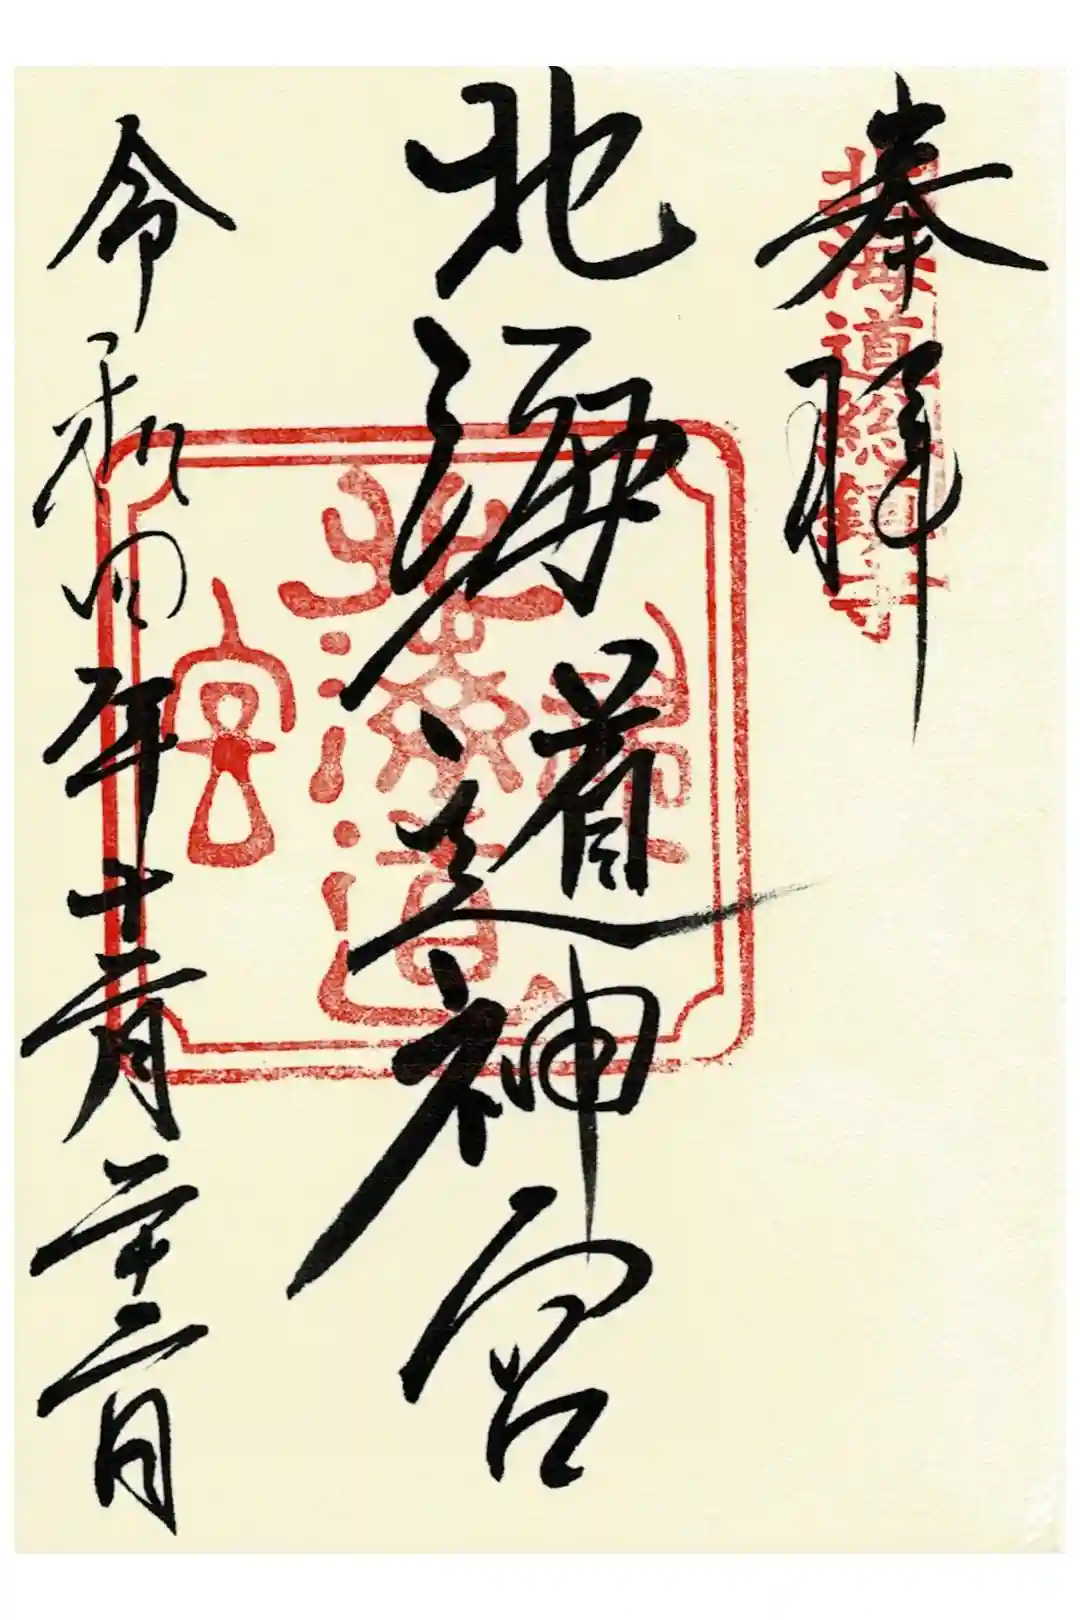 奉拝
北海道総鎮守
北海道神宮
北海道神宮
令和四年十二月二十二日